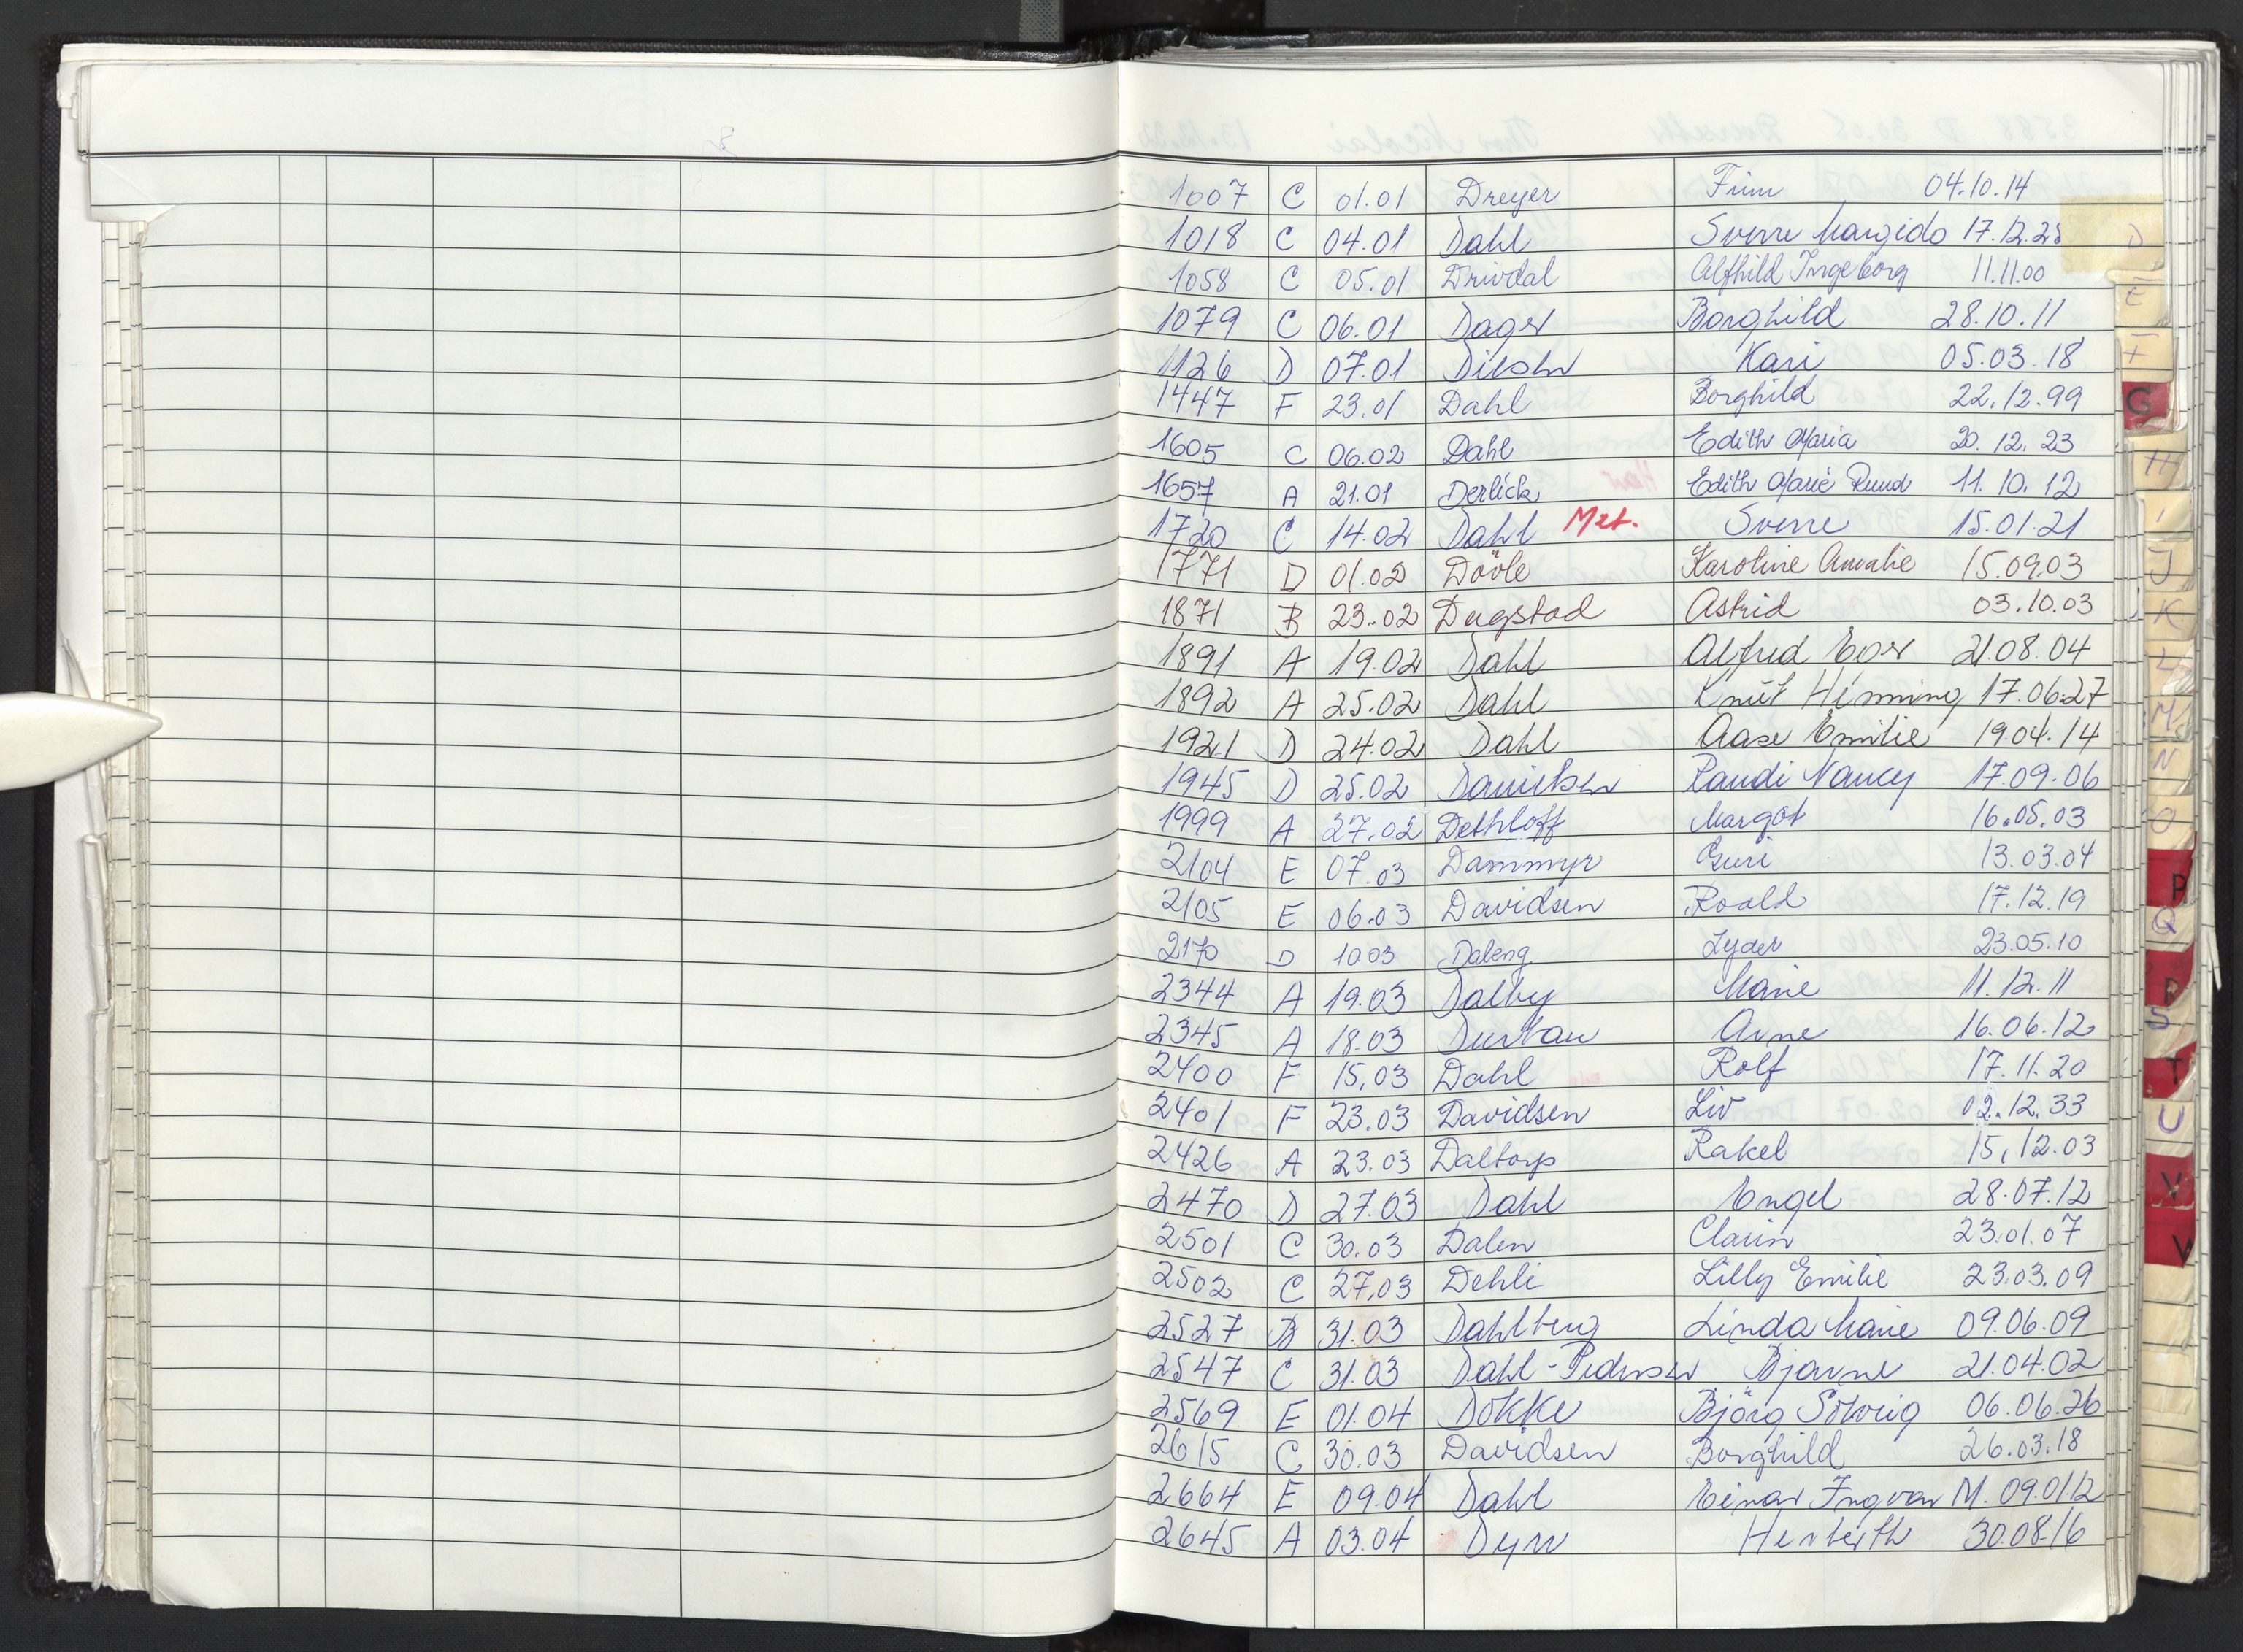 1007 C 01.01 Dreyer Finn 04.10.14
1018 C 04.01 Dahl Sverre Margido 17.12.25
1058 C 05.01 Drivdal Alfhild Ingeborg 11.11.00
1079 C 06.01 Dager Borghild 28.10.11
1126 D 07.01 Kari 05.03.18
1447 F 23.01 Dahl Borghild 22.12.99
1605 C 06.02 Dahl Edith Maria 20.12.23
1657 A 21.01 Derlick Edith Marie Ruud 11.10.12
1720 C 14.02 Dahl Met. Sverre 15.01.21
1771 D 01.02 Døvle Karoline Amalie 15.09.03
1871 B 23.02 Degstad Astrid 03.10.03
1891 A 19.02 Dahl Alfred 21.08.04
1892 A 25.02 Dahl Knut Henning 17.06.27
1921 D 24.02 Dahl Aase Emilie 19.04.14
1945 D 25.02 Danielsen Randi Nancy 17.09.06
1999 A 27.02 Dethloff Margot 16.05.03
2104 E 07.03 Dammyr Guri 13.03.04
2105 E 06.03 Davidsen Roald 17.12.19
2170 D 10.03 Daleng Lyder 23.05.10
2344 A 19.03 Dalby Marie 11.12.11
2345 A 18.03 Durban Arne 16.06.12
2400 F 15.03 Dahl Rolf 17.11.20
2401 F 23.03 Davidsen Liv 02.12.33
2426 A 23.03 Daltorp Rakel 15.12.03
2470 D 27.03 Dahl Engel 28.07.12
2501 C 30.03 Dalen Clarin 23.01.07
2502 C 27.03 Dehli Lilly Emilie 23.03.09
2527 B 31.03 Dahlberg Linda Marie 09.06.09
2547 C 31.03 Dahl-Pedersen Bjarne 21.04.02
2569 E 01.04 Dokke Björg Solveig 06.06.26
2615 C 30.03 Davidsen Borghild 26.03.18
2664 E 09.04 Dahl Einar Ingvar M. 09.01.12
2645 A 03.04 Herberth 30.08.16
D
E
F
G
H
I
J
K
L
M
N
O
P
Q
R
S
T
U
V